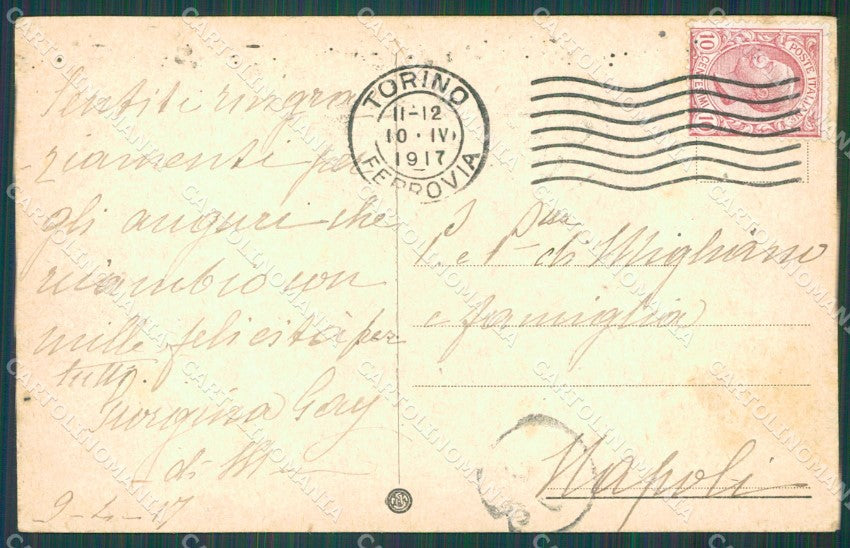 Sentiti ringra
ziamenti per
gli auguri che
ricambio con
mille felicità per
tutti.
Gay
di
9-4-17
TORINO
11-12
10·IV
1917
FERROVIA
POSTE ITALIANE
10 CENTESIMI 10
di Migliano
e famiglia
Napoli
CARTOLINOMANIA